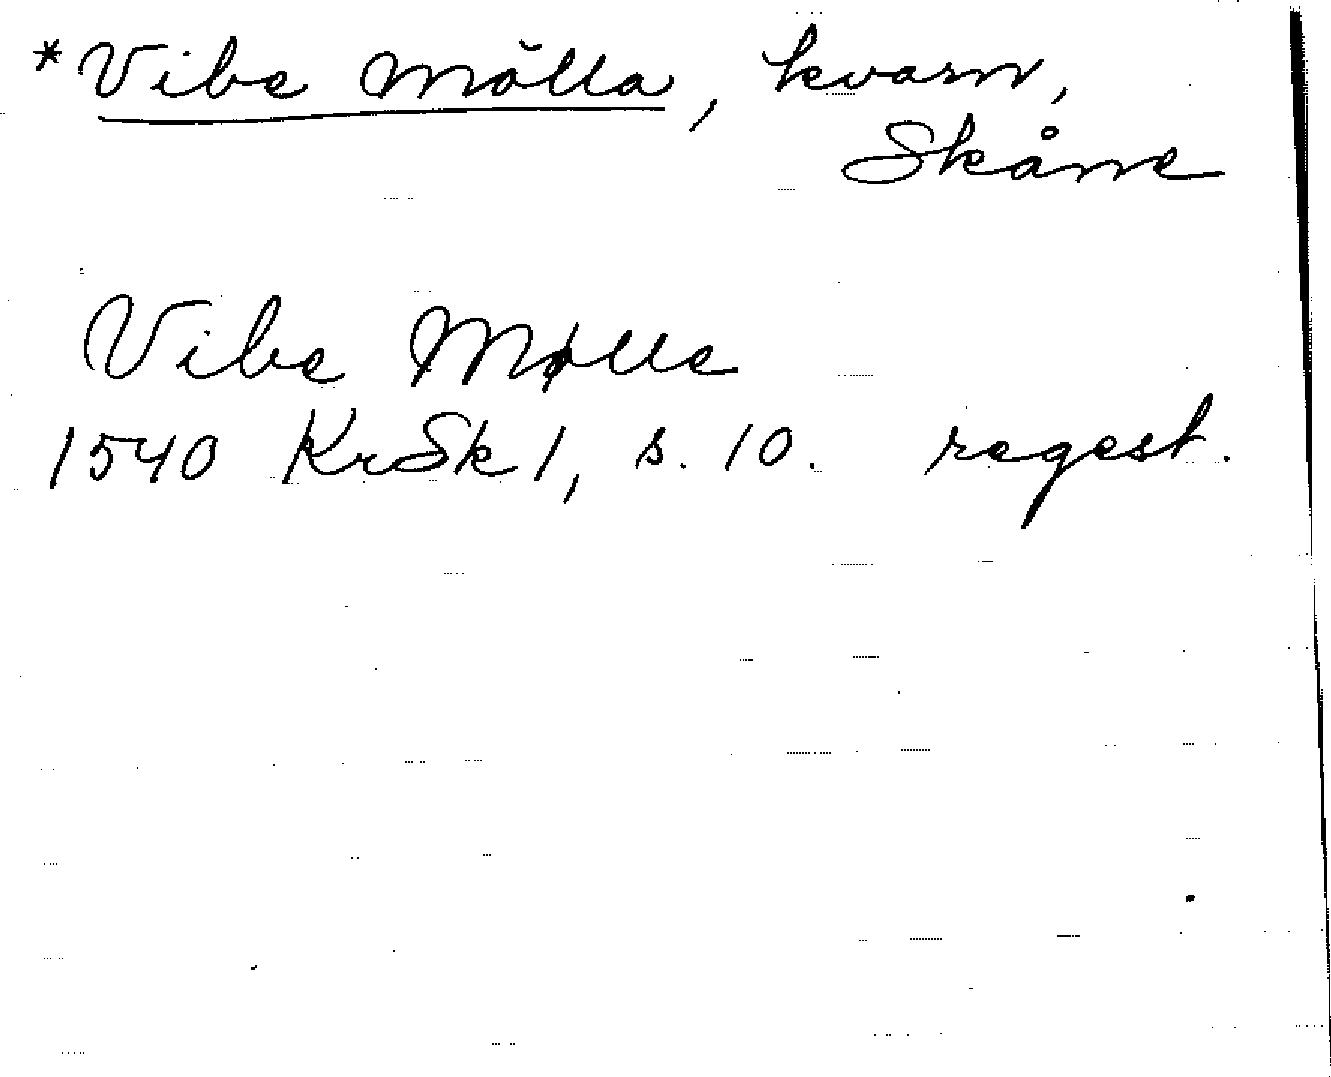 *Vibe mölla, kvarn,
Skåne
Vibe Mølle
1540 KrSk 1, s. 10. regest.